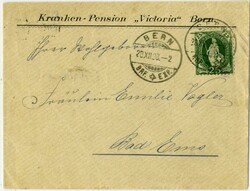 Kranken-Pension „Victoria" Bern.
BERN
BRF. EXP.
Ihrer Wohlgeboren
Fräulein Emilie Vogler
Bad Ems